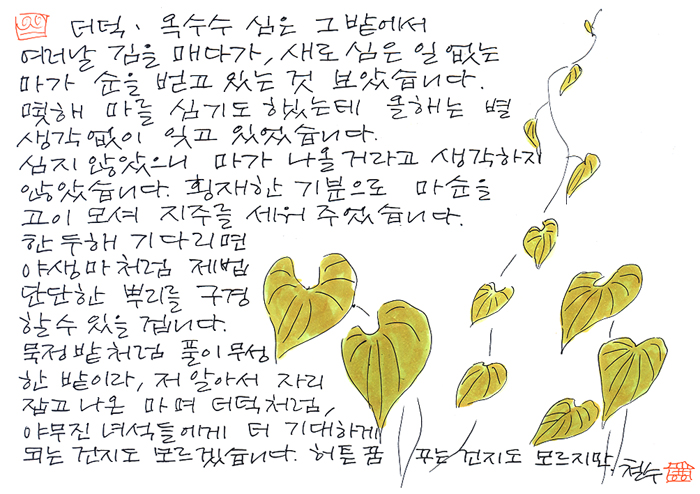 더덕. 옥수수 심은 그 밭에서
여러날 김을 매다가, 새로 심은 일 없는
마가 순을 벋고 있는 것 보았습니다.
몇해 마를 심기도 했는데 올해는 별
생각없이 잊고 있었습니다.
심지 않았으니 마가 나올거라고 생각하지
않았습니다. 횡재한 기분으로 마순을
고이 모셔 지주를 세워 주었습니다.
한 두해 기다리면
야생마처럼 제법
단단한 뿌리를 구경
할 수 있을 겁니다.
묵정밭처럼 풀이 무성
한 밭이라, 저 알아서 자리
잡고 나온 마며 더덕처럼,
야무진 녀석들에게 더 기대하게
되는 건지도 모르겠습니다. 허튼 꿈 꾸는 건지도 모르지만. 철수